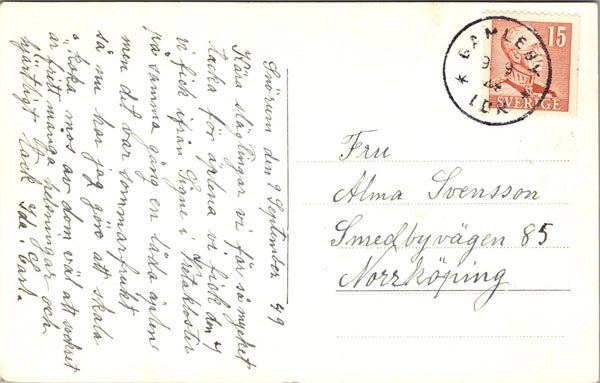 Smörum den 9 September 49
Kära släktingar vi får så mycket
tacka för äplena vi fick den 4
vi fick ifrån Signe i Vretakloster
på samma gång en låda äplen
men det var sommarfrukt
så nu har jag göra att skala
o koka mos av dom väl att sockret
är fritt många helsningar och
hjärtligt tack Ida Carl.
GAMLEBY
9 9
15
SVERIGE
Fru
Alma Svensson
Smedbyvägen 85
Norrköping